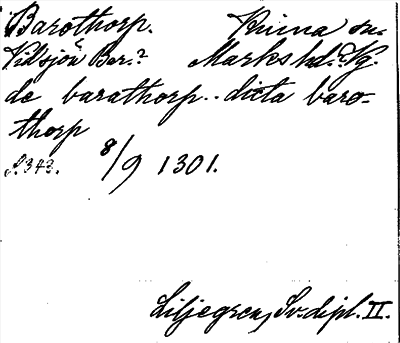 Barothorp. Kinna sn.
Kilsjön? Bar.? Marks hd.? Vg.
de barathorp.. dicta baro-
thorp
S. 343. 8/9 1301.
Liljegren, Sv. dipl. II.